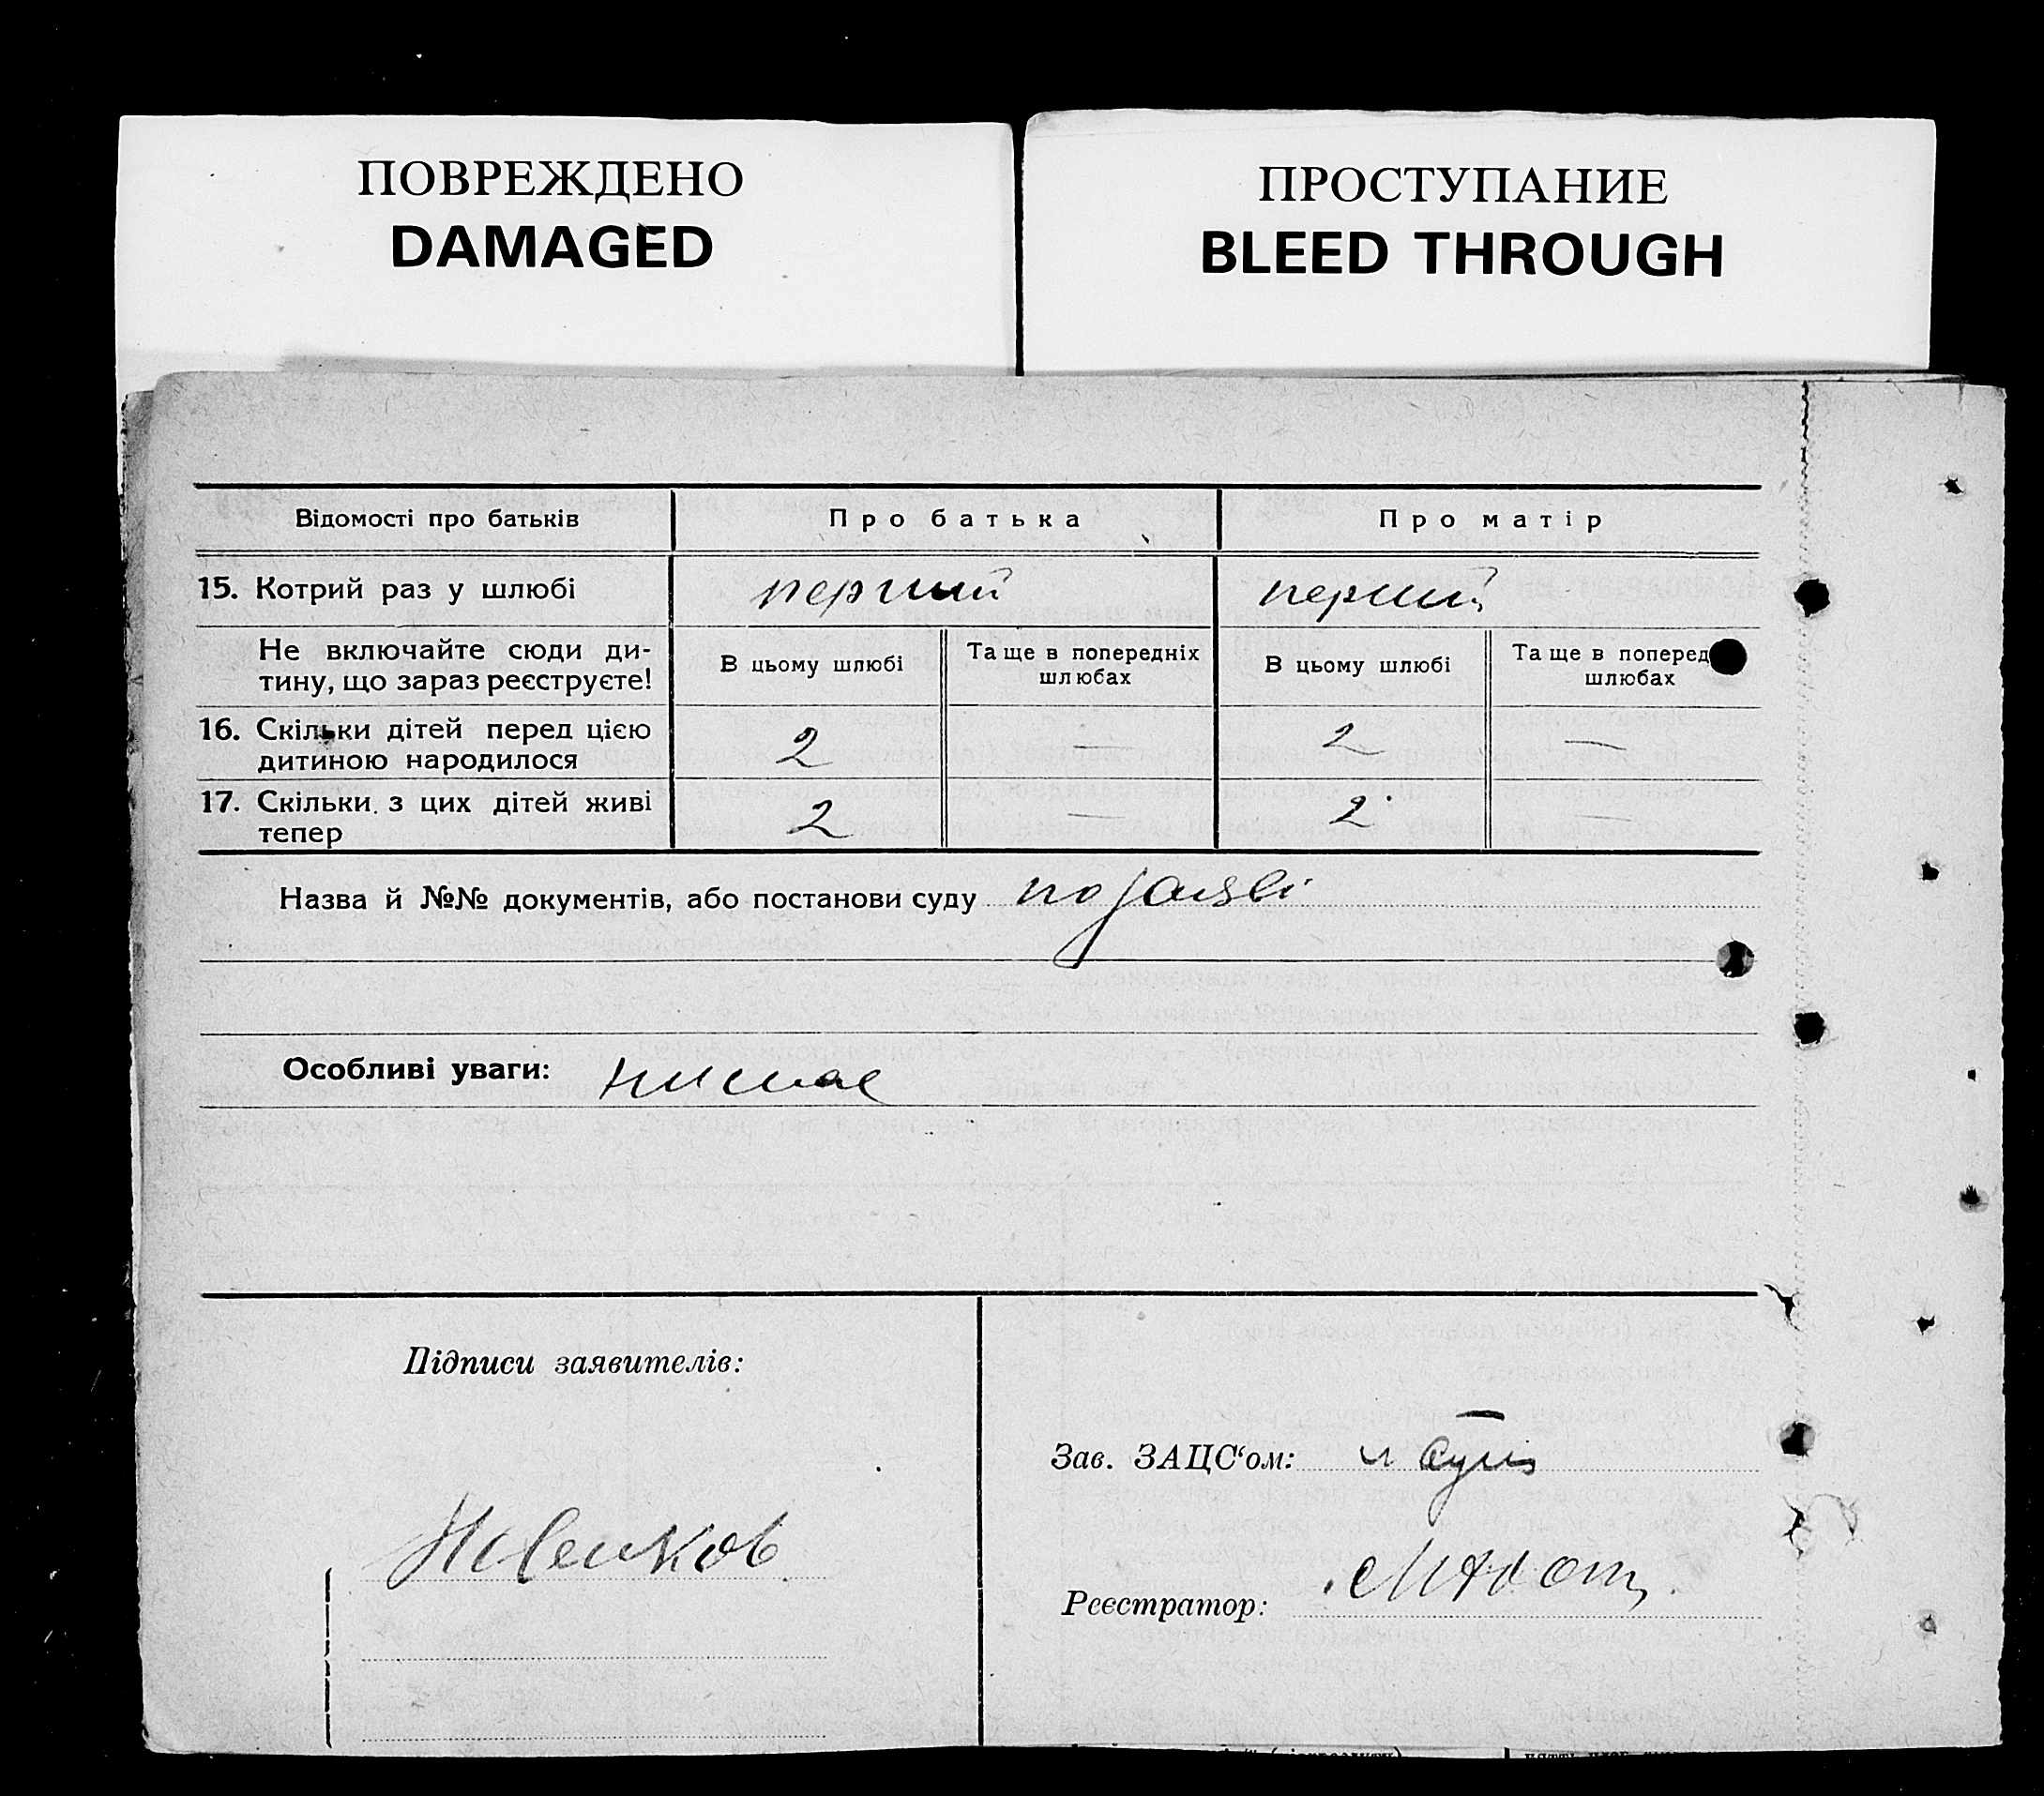 ПОВРЕЖДЕНО
DAMAGED
ПРОСТУПАНИЕ
BLEED THROUGH
Відомості про батьків Про батька Про матір
15. Котрий раз у шлюбі перший перший
Не включайте сюди ди-
тину, що зараз реєструєте!
В цьому шлюбі
Та ще в попередніх
шлюбах
В цьому шлюбі
Та ще в поперед
шлюбах
16. Скільки дітей перед цією
дитиною народилося
2 — 2 —
17. Скільки з цих дітей живі
тепер
2 — 2 —
Назва й №№ документів, або постанови суду по заяві
Особливі уваги: немає
Підписи заявителів:
Зав. ЗАЦС‘ом:
Реєстратор: